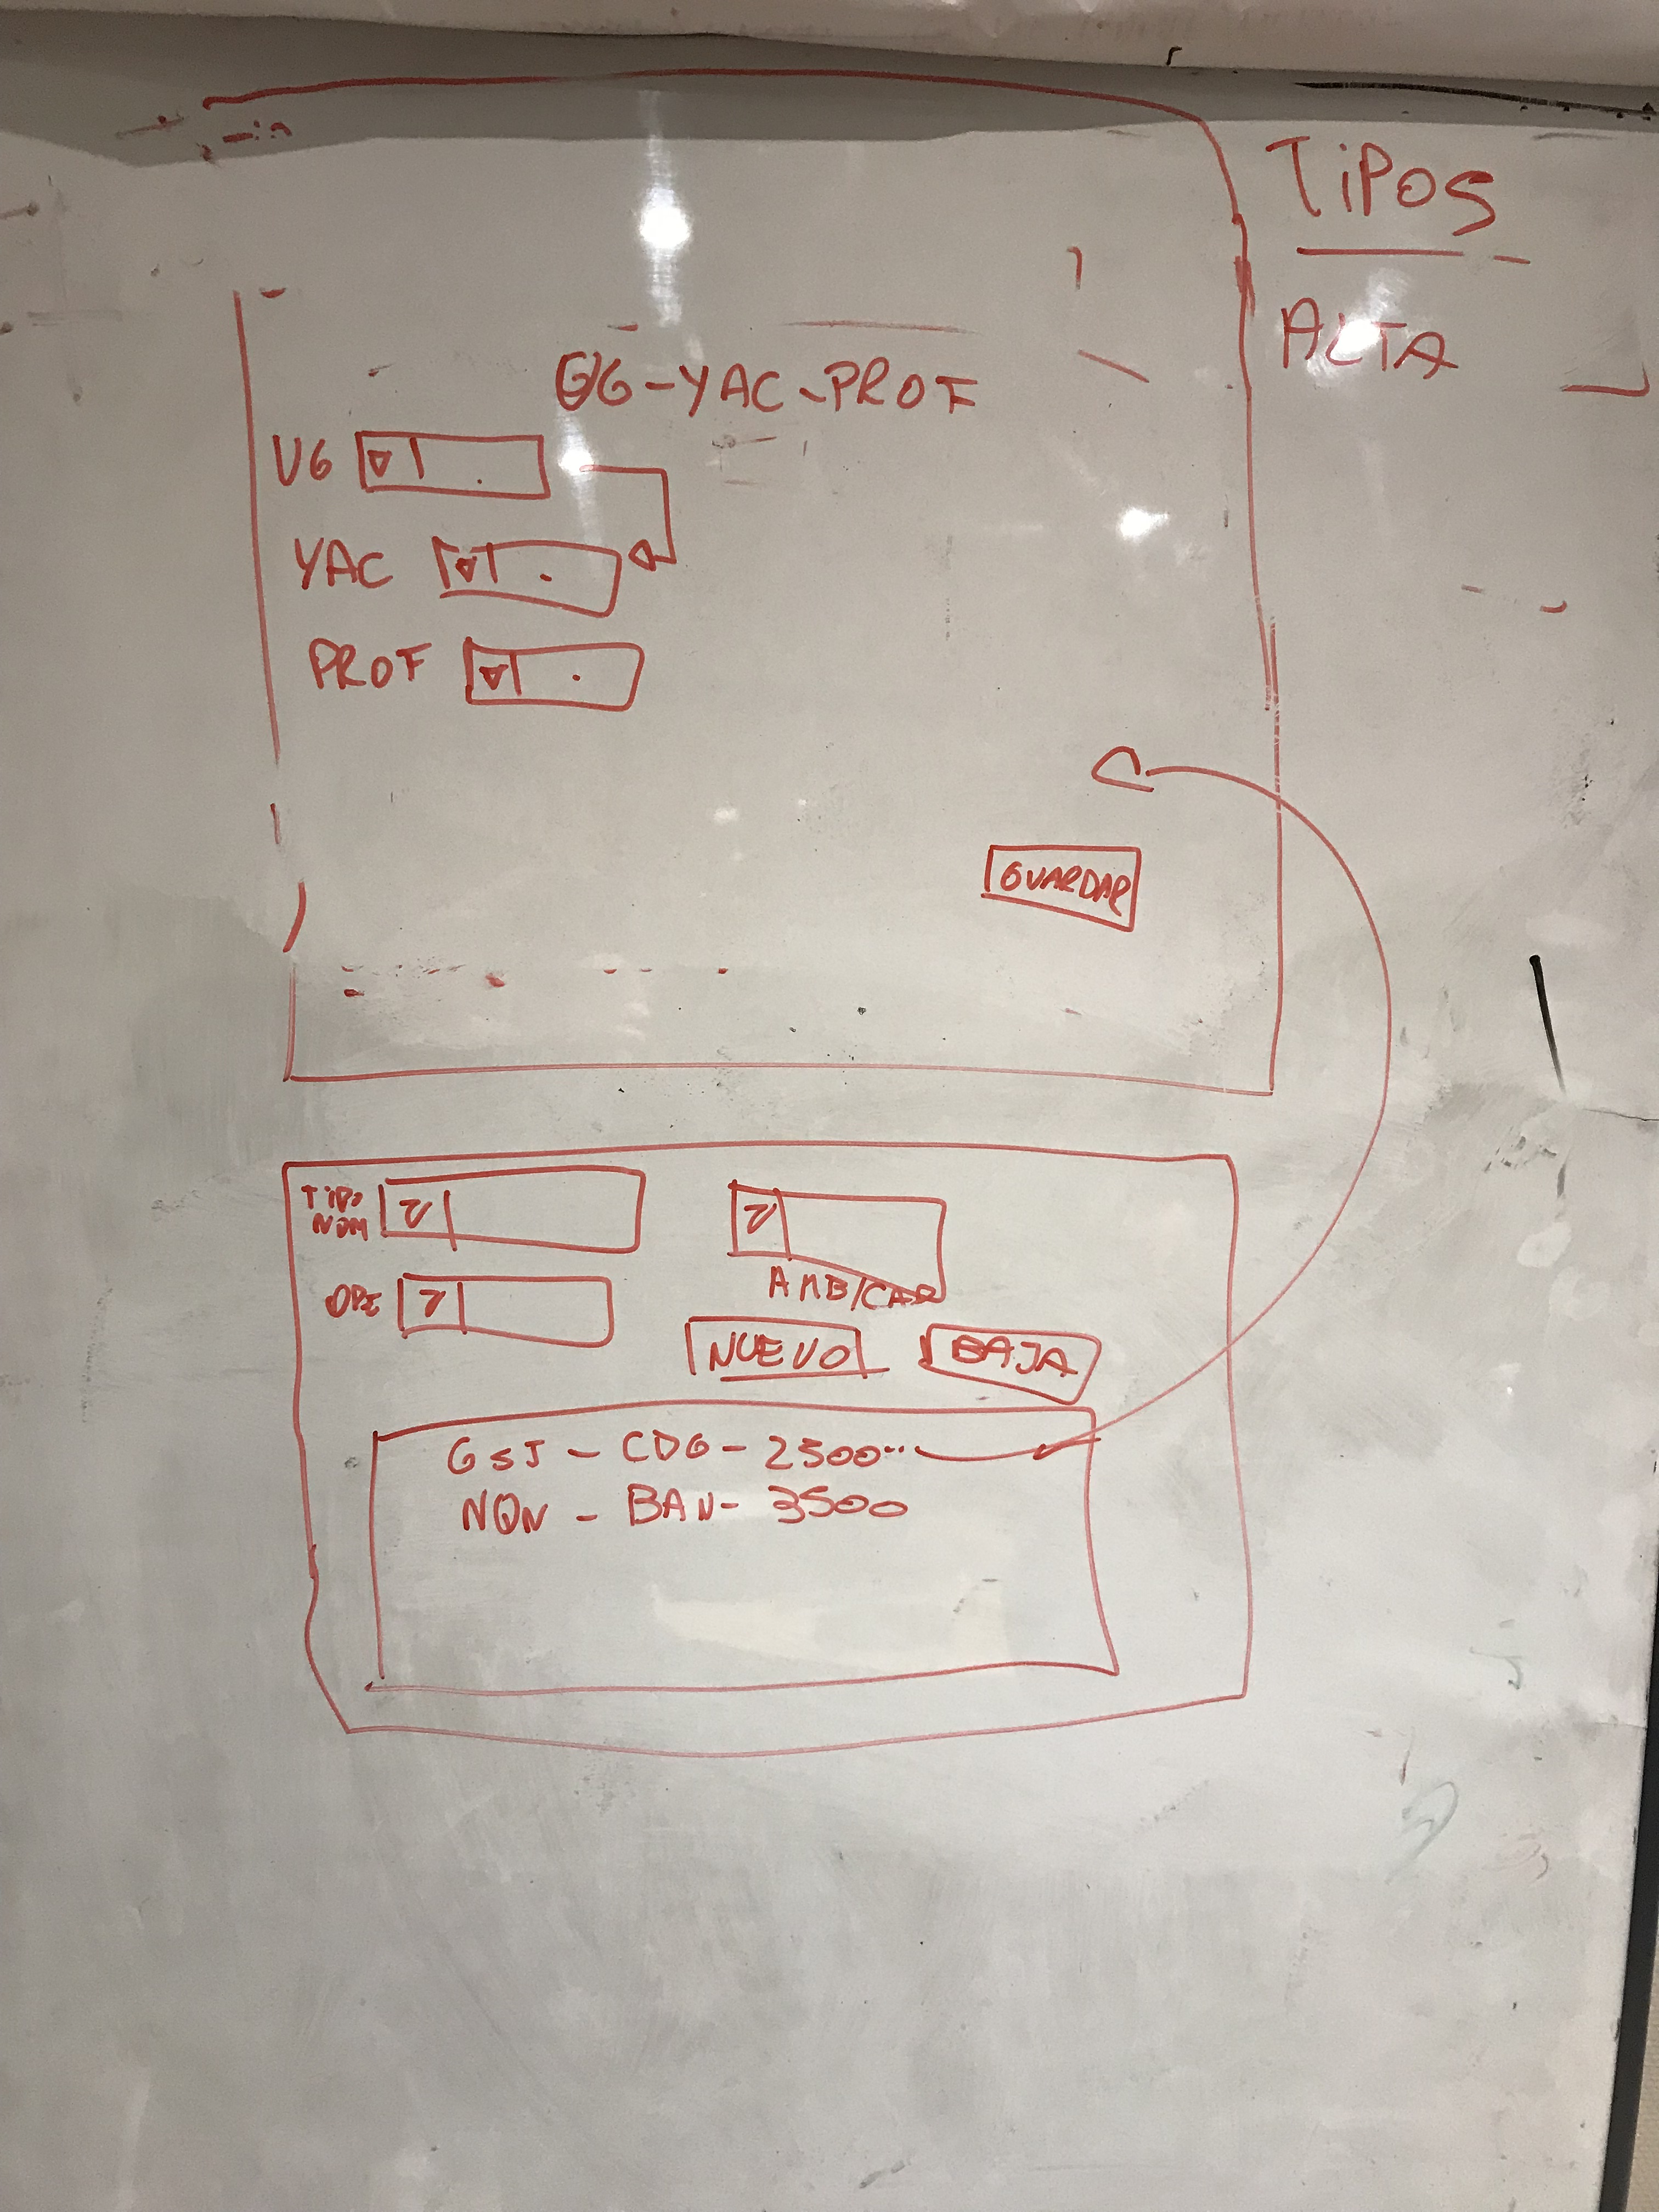 TiPOS
ALTA
UG-YAC-PROF
UG
YAC
PROF
GUARDAR
TiPO
NOM
OPE
AMB/CAR
NUEVO
BAJA
GSJ - CDG - 2500..
NQN - BAN - 3500